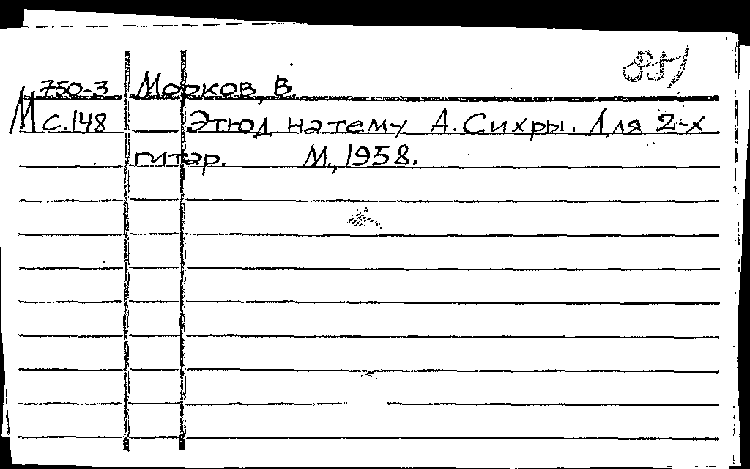 750-3 Морков, В.
М с.148 Этюд на тему А.Сихры. Для 2-х
гитар. М., 1958.